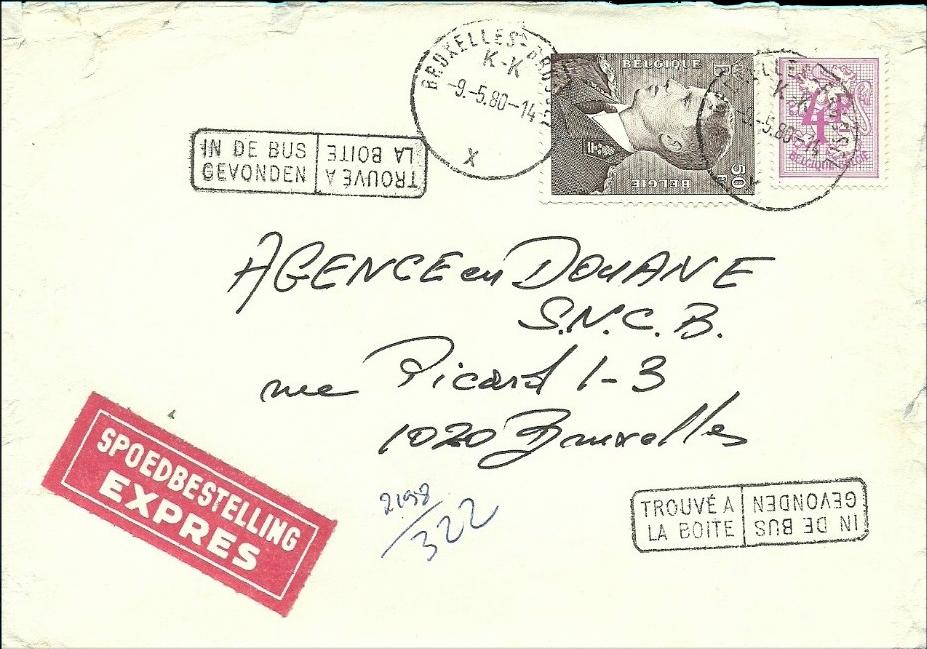 BRUXELLES-BRUSSEL
K-K
-9.-5.80-14
X
BELGIQUE
BELGIE
50 F
4F
BELGIQUE-BELGIE
K-K
-9.-5.80-14
IN DE BUS GEVONDEN
TROUVÉ A LA BOITE
AGENCE en DOUANE
S.N.C.B.
rue Picard 1-3
1020 Bruxelles
SPOEDBESTELLING
EXPRES
2198
/322
TROUVÉ A LA BOITE
IN DE BUS GEVONDEN